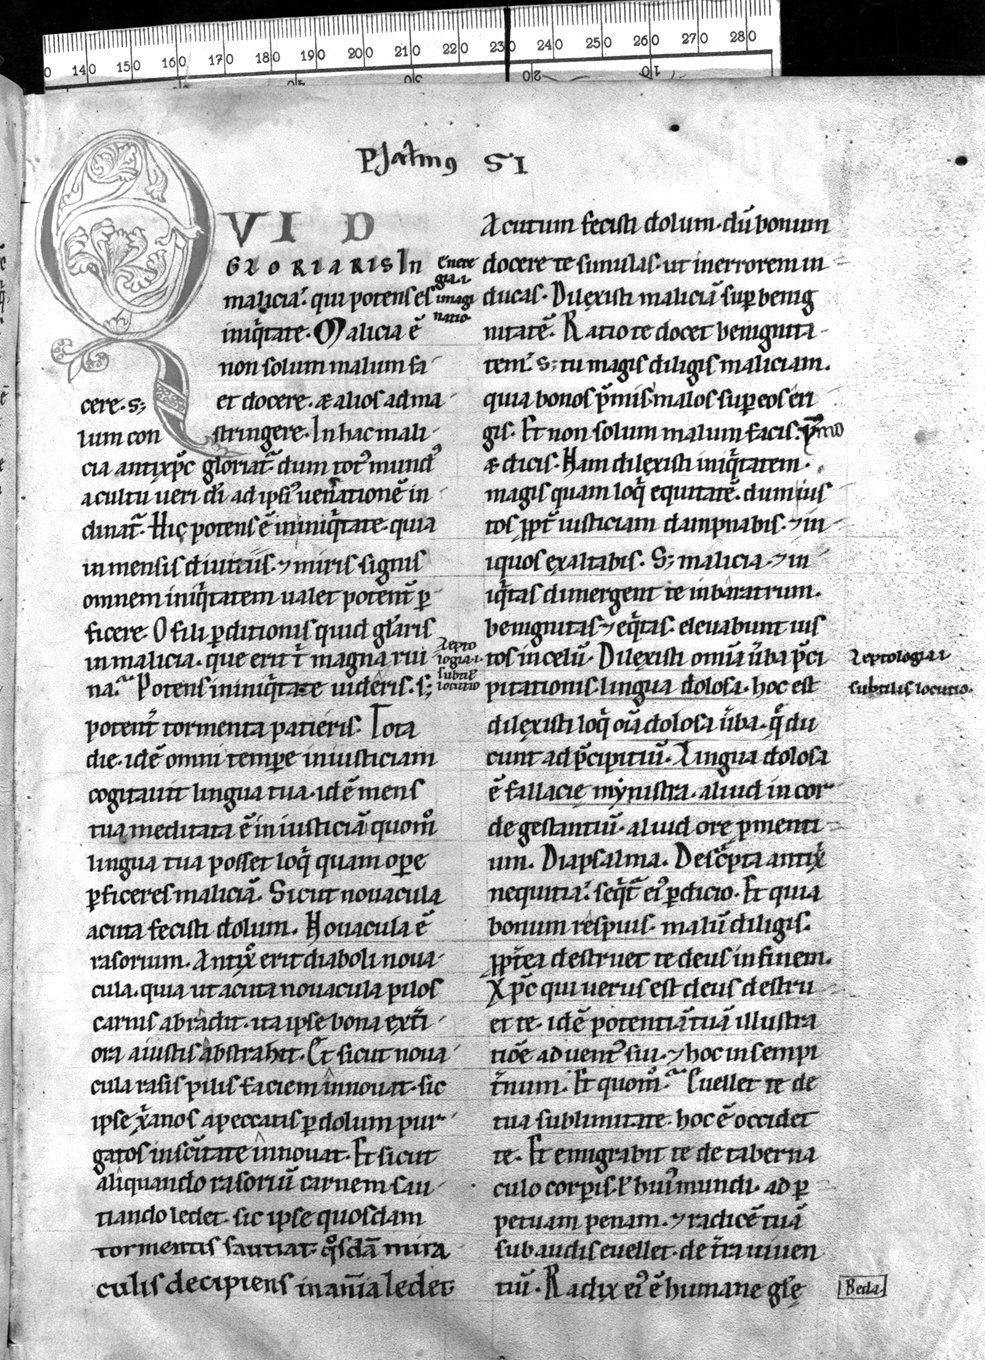 140 150 160 170 180 190 200 210 220 230 240 250 260 270 280
Psalmꝰ SI
QVI D
GLORIARIS In
malicia. qui potens es
iniq̄tate. Malicia ē
non solum malum fa-
cere. s; et docere. & alios ad ma-
lum con stringere. In hac mali-
cia antixp̄c gloriat᷑. dum totꝰ mundꝰ
a cultu ueri dī ad ipsiꝰ uenationē in
clinat᷑. Hic potens ē in iniq̄tate. quia
inmensis diuitiis. ⁊ miris signis
omnem iniq̄tatem ualet potent᷑ p̄
ficere. O fili p̄ditionis quid gl̄aris
in malicia. que erit t̄ magna rui
na. Potens in iniq̄tate uideris. s;
potent᷑ tormenta patieris. Tota
die. idē omni tempore iniusticiam
cogitauit lingua tua. idē mens
tua meditata ē iniusticiā quom̊
lingua tua posset loq̄ quam ope
p̄ficeres maliciā. Sicut nouacula
acuta fecisti dolum. Nouacula ē
rasorium. Antix̄ erit diaboli noua-
cula. quia ut acuta nouacula pilos
carnis abradit. ita ipse bona ext̄i
ora a iustis abstrahet. Et sicut noua
cula rasis pilis faciem innouat. sic
ipse x̄anos a peccatis p̄ dolum pur-
gatos in scītate innouat. Et sicut
aliquando rasoriū carnem sau-
tiando ledet. sic ipse quosdam
tormentis sautiat. q̊sdā mira
culis decipiens in anīa ledet
Energia .i. imaginatio.
Leptologia .i. subtil̄ locutio
Acutum fecisti dolum. dū bonum
docere te simulas. ut in errorem in
ducas. Dilexisti maliciā sup benig
nitatē. Ratio te docet benignita-
tem. s; tu magis diligis maliciam.
quia bonos p̄mis. malos sup eos eri
gis. Et non solum malum facis.
& dicis. Nam dilexisti iniq̄tatem.
magis quam loq̄ equitatē. dum ius
tos pp̄t iusticiam dampnabis. ⁊ in-
iquos exaltabis. S; malicia. ⁊ in
iq̄tas dimergent te in baratrum.
benignitas ⁊ eq̄tas. eleuabunt ius
tos in celū. Dilexisti omīa ūba p̄ci
pitationis. lingua dolosa. hoc est
dilexisti loq̄ oīa dolosa ūba. q̄ du
cunt ad p̄cipitiū. Lingua dolosa
ē fallacie mynistra. aliud in cor-
de gestantiū. aliud ore pmenti-
um. Diapsalma. Desc̄pta antix̄
nequitia. seq̄t᷑ eiꝰ p̄dicio. Et quia
bonum respuis. malū diligis.
ppt̄ea destruet te deus in finem.
Xp̄c qui uerus est deus destru
et te. idē potentiā tuā illustra
tiōe aduentꝰ sui. ⁊ hoc in sempi
t̄num. Et quom̊. euellet te de
tua sublimitate. hoc ē occidet
te. Et emigrabit te de taberna
culo corp̄is. l̄ huiꝰ mundi. ad p̄
petuam penam. ⁊ radicē tuā
subaudis euellet. de t̄ra uiuen
tiū. Radix eiꝰ ē humane gl̄e
Leptologia .i.
subtilis locutio.
Beda